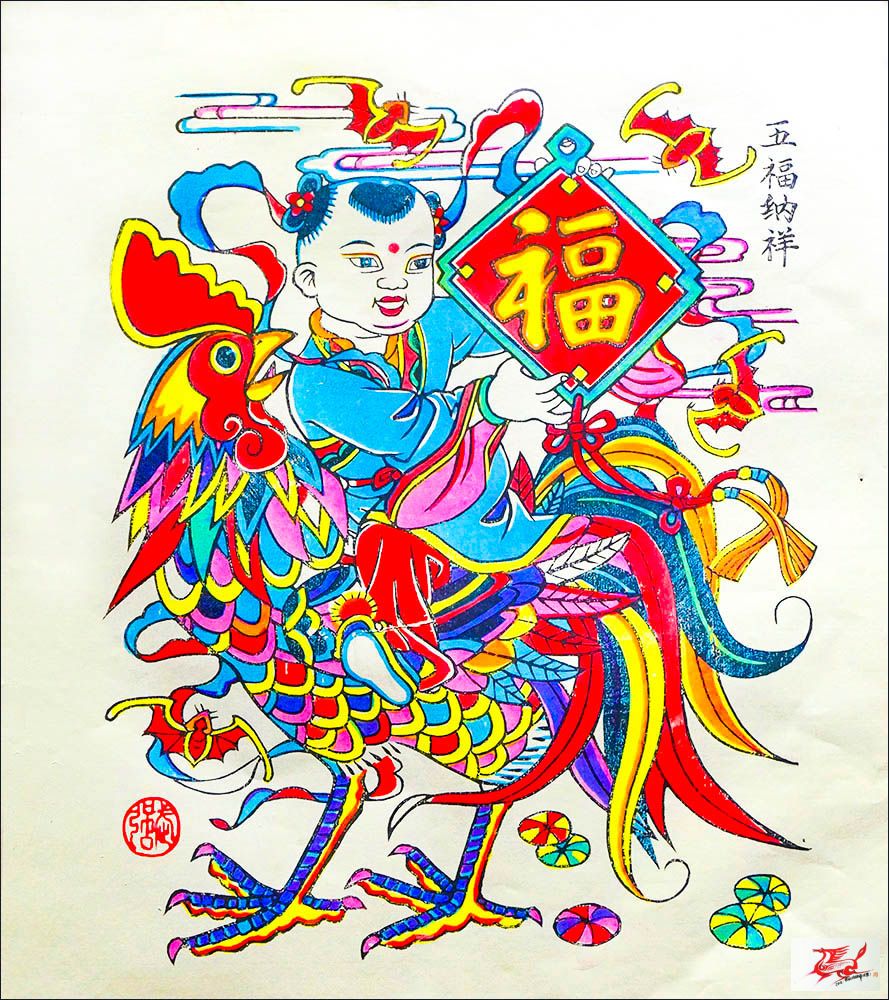 五福纳祥
福